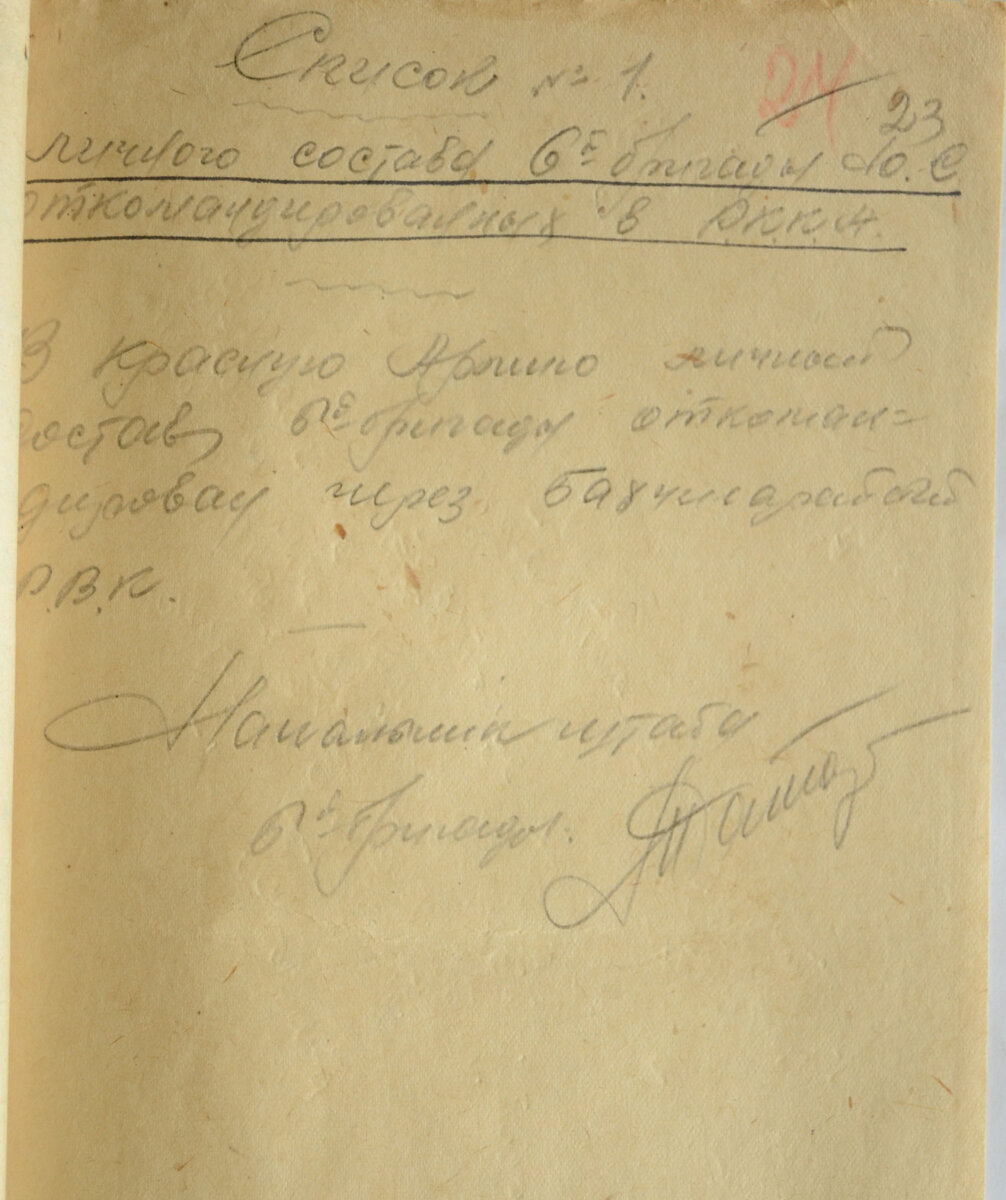 Список № 1.
24
23
личного состава 6й бригады Ю.С
откомандированных в Р.К.К.А.
В Красную Армию личный
состав 6й бригады откоман=
дирован через Бахчисарайский
Р.В.К.
Начальник штаба
6й бригады.